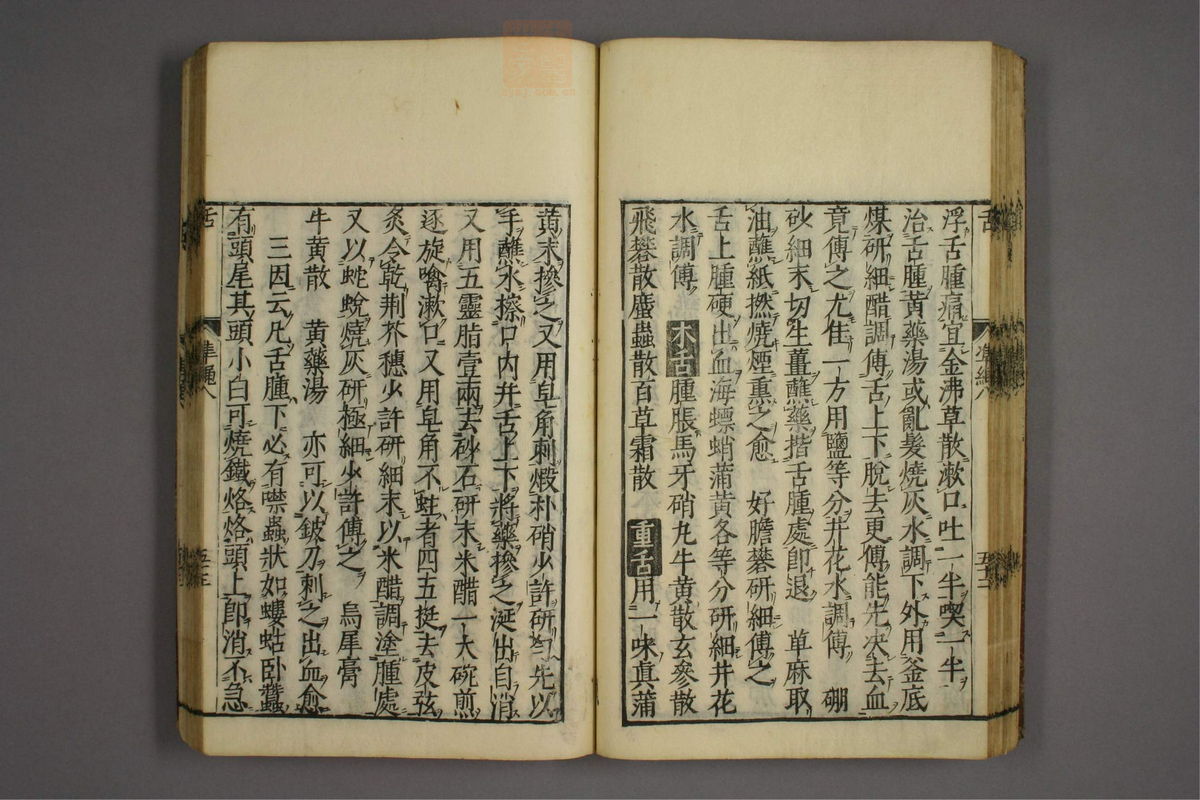 浮舌腫痛宜金沸草散漱口吐一半喫一半
治舌腫黄藥湯或亂髮燒灰水調下外用釜底
煤研細醋調傅舌上下脫去更傅能先决去血
竟傅之尤佳一方用鹽等分井花水調傅 硼
砂細末切生薑蘸藥揩舌腫處即退 草麻取
油蘸紙撚燒煙熏之愈 好膽礬研細傅之
舌上腫硬出血海螵蛸蒲黄各等分研細井花
水調傅 木舌腫脹馬牙硝丸牛黄散玄參散
飛礬散䗪蟲散百草霜散 重舌用一味真蒲
黄末摻之又用皂角刺煅朴硝少許研勻先以
手蘸水擦口内并舌上下將藥摻之涎出自消
又用五靈脂壹兩去砂石研末米醋一大碗煎
逐旋噙漱口又用皂角不蛀者四五挺去皮弦
炙令乾荆芥穗少許研細末以米醋調塗腫處
又以蛇蛻燒灰研極細少許傅之 烏犀膏
牛黄散 黄藥湯 亦可以鈹刀刺之出血愈
三因云凡舌腫下必有噤蟲狀如螻蛄卧蠶
有頭尾其頭小白可燒鐵烙烙頭上即消不急
舌
準繩八
五三